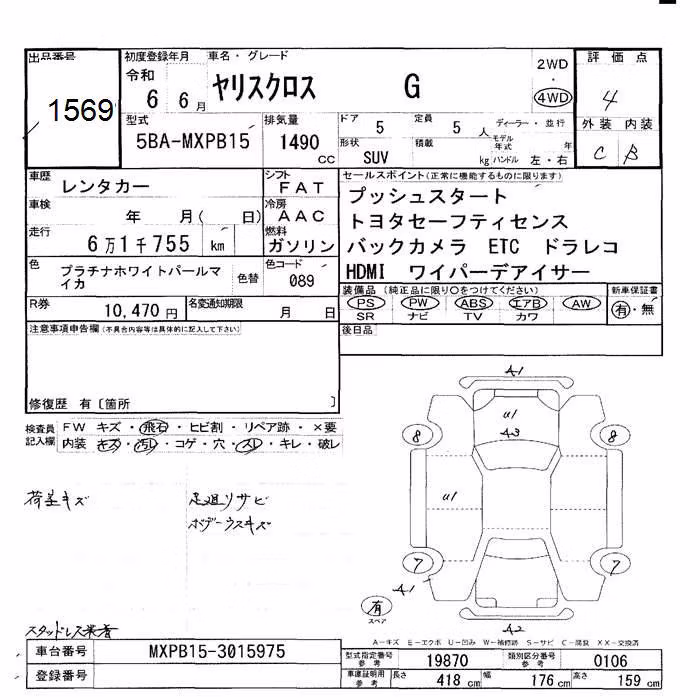 出品番号
1569
初度登録年月
令和 6 6月
車名・グレード
ヤリスクロス G
2WD
・
4WD
評価点
4
外装 内装
C B
型式
5BA-MXPB15
排気量
1490 CC
ドア 5
定員 5 人
ディーラー・並行
モデル年式 年
形状 SUV
積載 kg
ハンドル 左・右
車歴 レンタカー
シフト FAT
車検 年 月( 日)
冷房 AAC
走行 6万1千755 km
燃料 ガソリン
色 プラチナホワイトパールマイカ
色替
色コード 089
R券 10,470円
名変通知期限 月 日
セールスポイント(正常に機能するものに限ります)
プッシュスタート
トヨタセーフティセンス
バックカメラ ETC ドラレコ
HDMI ワイパーデアイサー
装備品(純正品に限り○をつけてください)
PS PW ABS エアB AW
SR ナビ TV カワ
新車保証書
有・無
後日品
注意事項申告欄(不具合内容等は具体的に記入して下さい)
修復歴 有〔箇所 〕
検査員記入欄
FW キズ・飛石・ヒビ割・リペア跡・×要
内装 キズ・汚レ・コゲ・穴・スレ・キレ・破レ
荷室キズ
足廻リサビ
ボデーウスキズ
スタッドレス装着
A1
U1
A3
8 8
U1
7 7
A1
有
スペア
A2
A-キズ E-エクボ U-凹み W-補修跡 S-サビ C-腐食 XX-交換済
車台番号 MXPB15-3015975
登録番号
型式指定番号 参考 19870
類別区分番号 参考 0106
車庫証明用 参考 長さ 418cm 幅 176cm 高さ 159cm